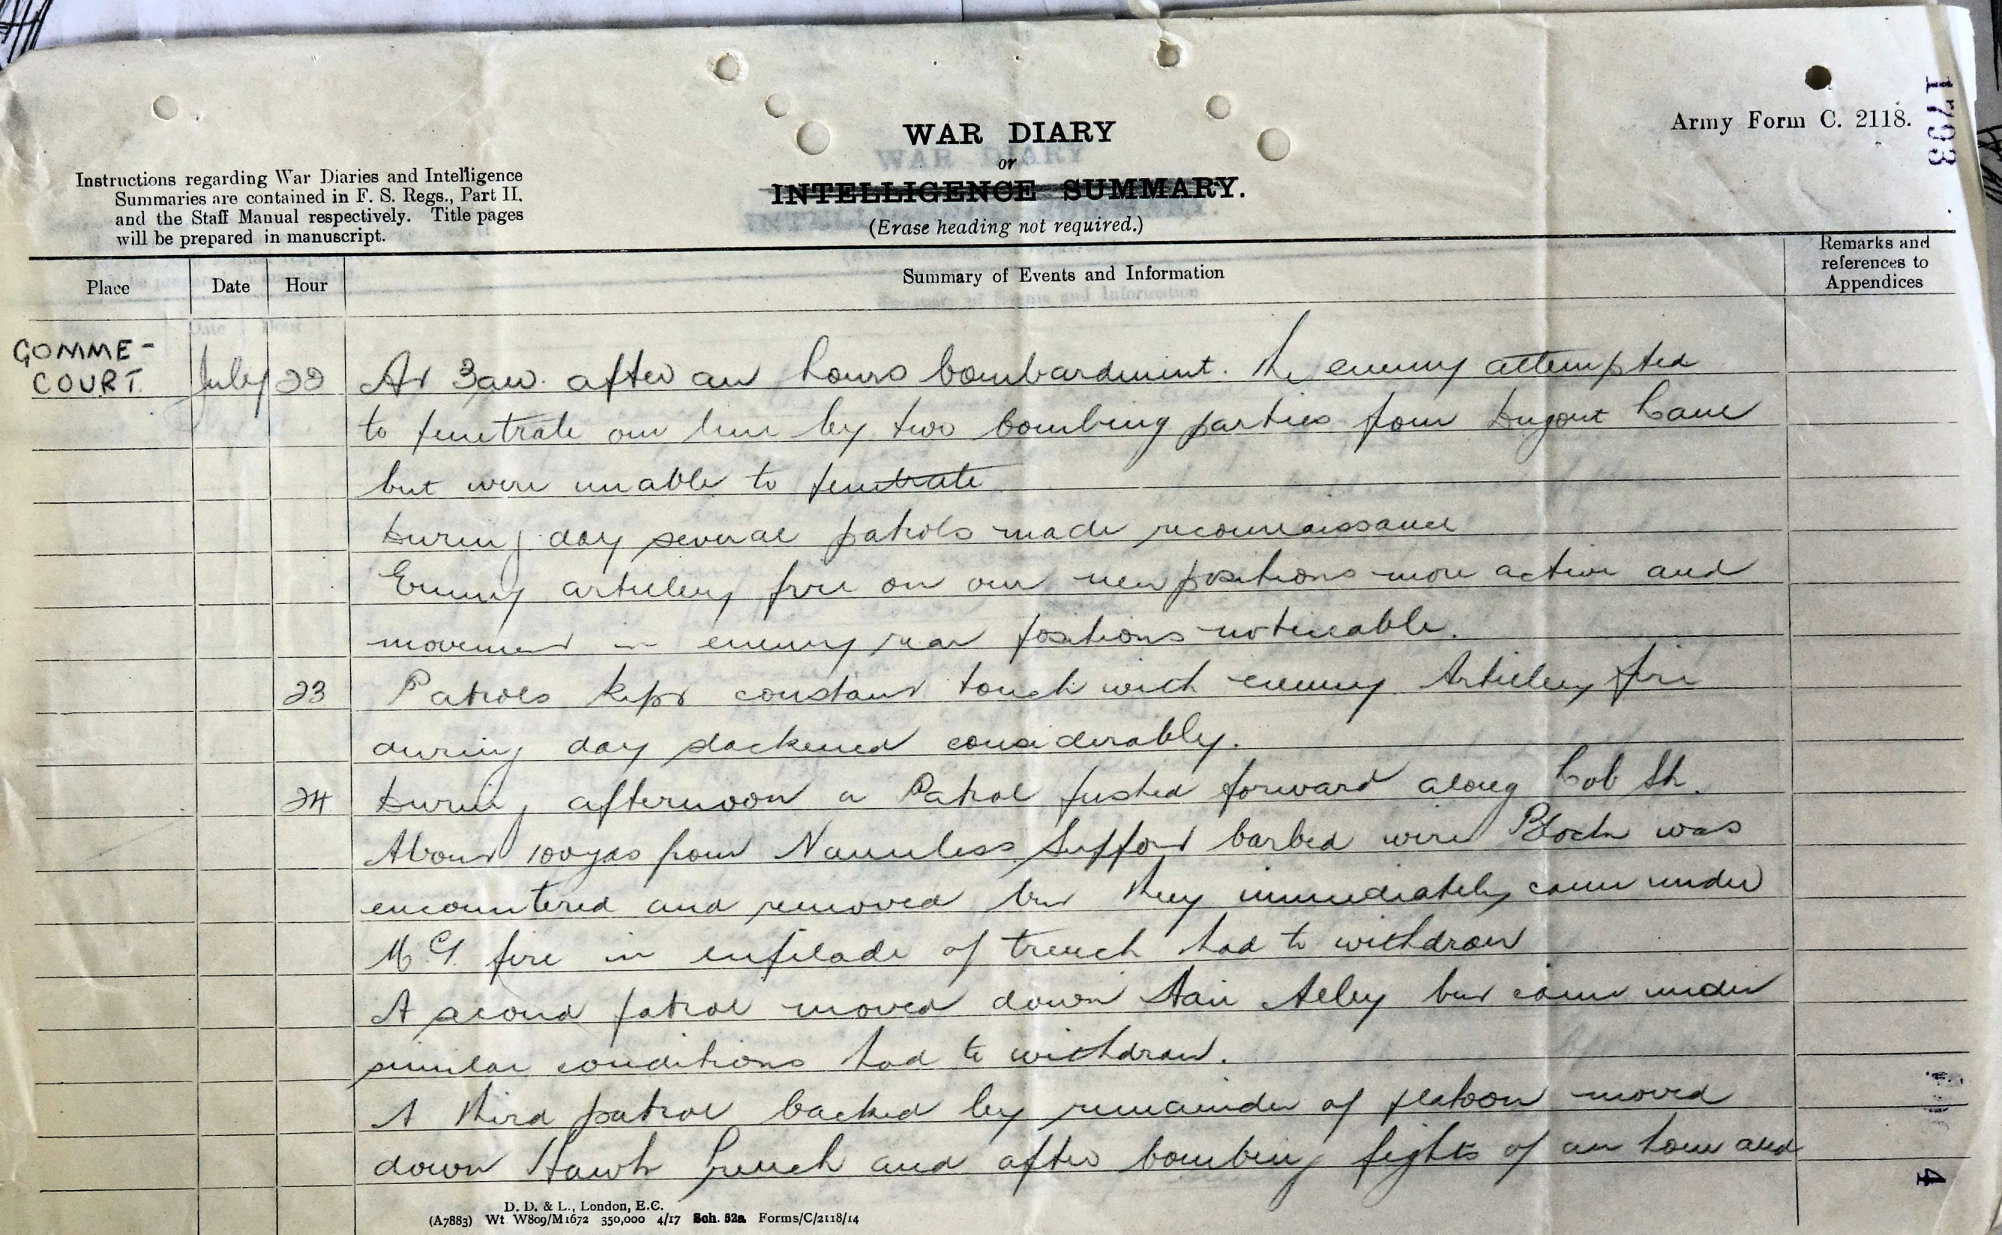 1793
Army Form C. 2118.
WAR DIARY
or
INTELLIGENCE SUMMARY.
(Erase heading not required.)
Instructions regarding War Diaries and Intelligence
Summaries are contained in F. S. Regs., Part II.
and the Staff Manual respectively. Title pages
will be prepared in manuscript.
Place Date Hour Summary of Events and Information Remarks and references to Appendices
GOMME-
COURT. July 22 At 3am. after an hours bombardment. the enemy attempted
to penetrate our line by two bombing parties from Dugout Lane
but were unable to penetrate
During day several patrols made reconnaissance
Enemy artillery fire on our new positions more active and
movement in enemy rear positions noticeable.
23 Patrols kept constant touch with enemy. Artillery fire
during day slackened considerably.
24 During afternoon a Patrol pushed forward along Cob St.
About 100yds from Nameless Support barbed wire Block was
encountered and removed but they immediately came under
M.G. fire in enfilade of trench had to withdraw
A second patrol moved down Stair Alley but came under
similar conditions had to withdraw.
A third patrol backed by remainder of platoon moved
down Hawk Trench and after bombing fights of an hour and
4
D. D. & L., London, E.C.
(A7883) Wt W809/M1672 350,000 4/17 Sch. 52a Forms/C/2118/14